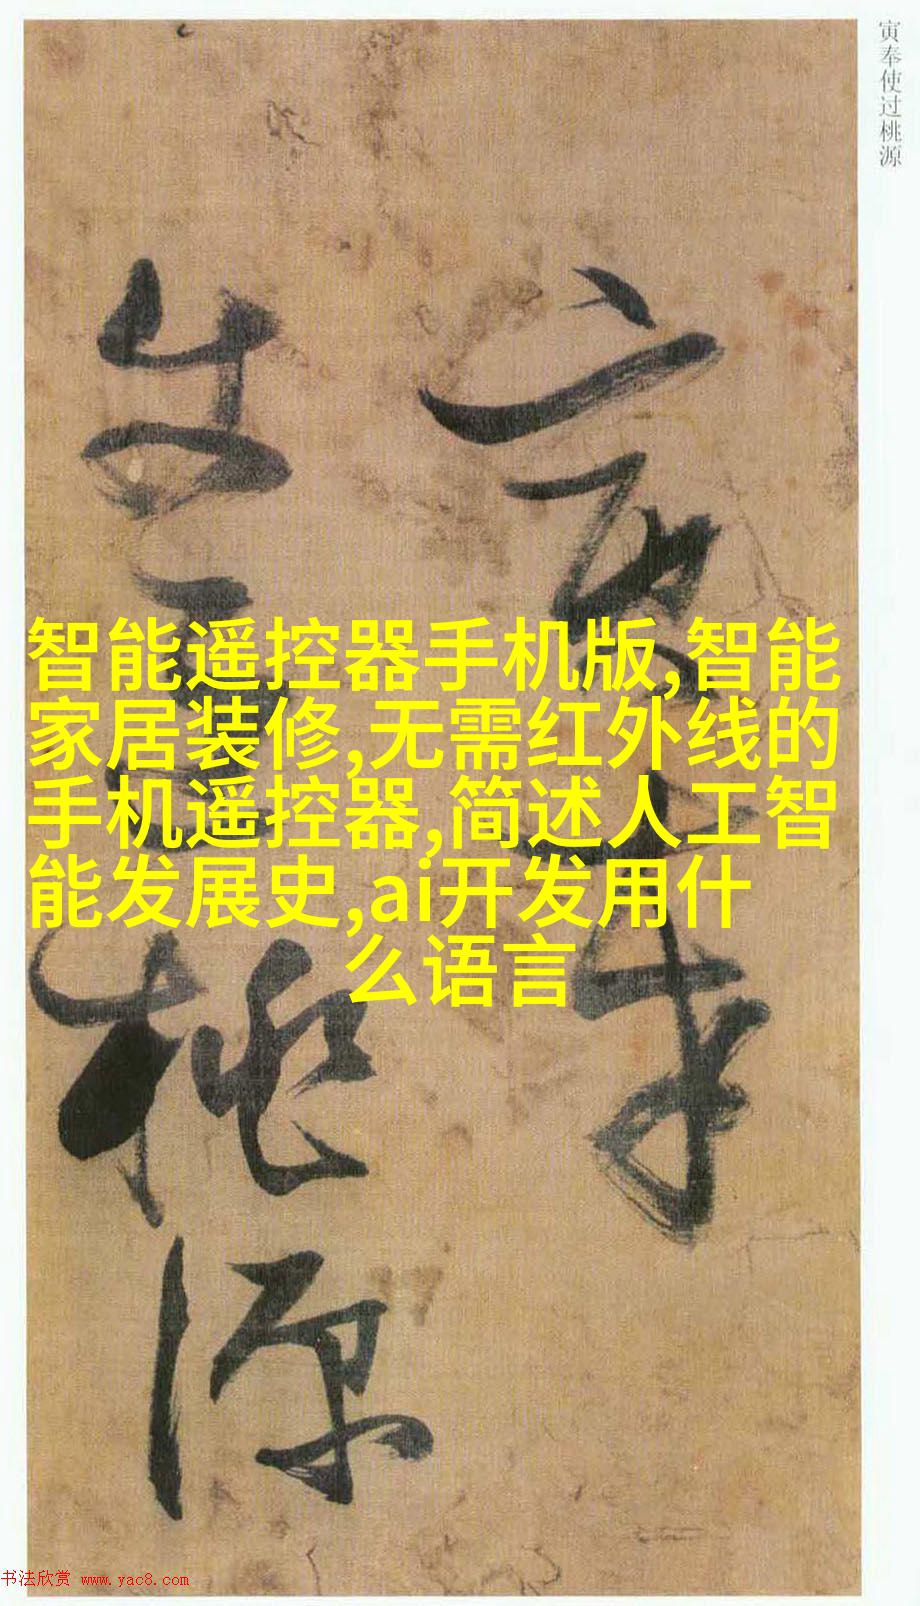 寅奉使过桃源
寅奉
使过桃源
智能遥控器手机版,智能
家居装修,无需红外线的
手机遥控器,简述人工智
能发展史,ai开发用什
么语言
书法欣赏 www.yac8.com